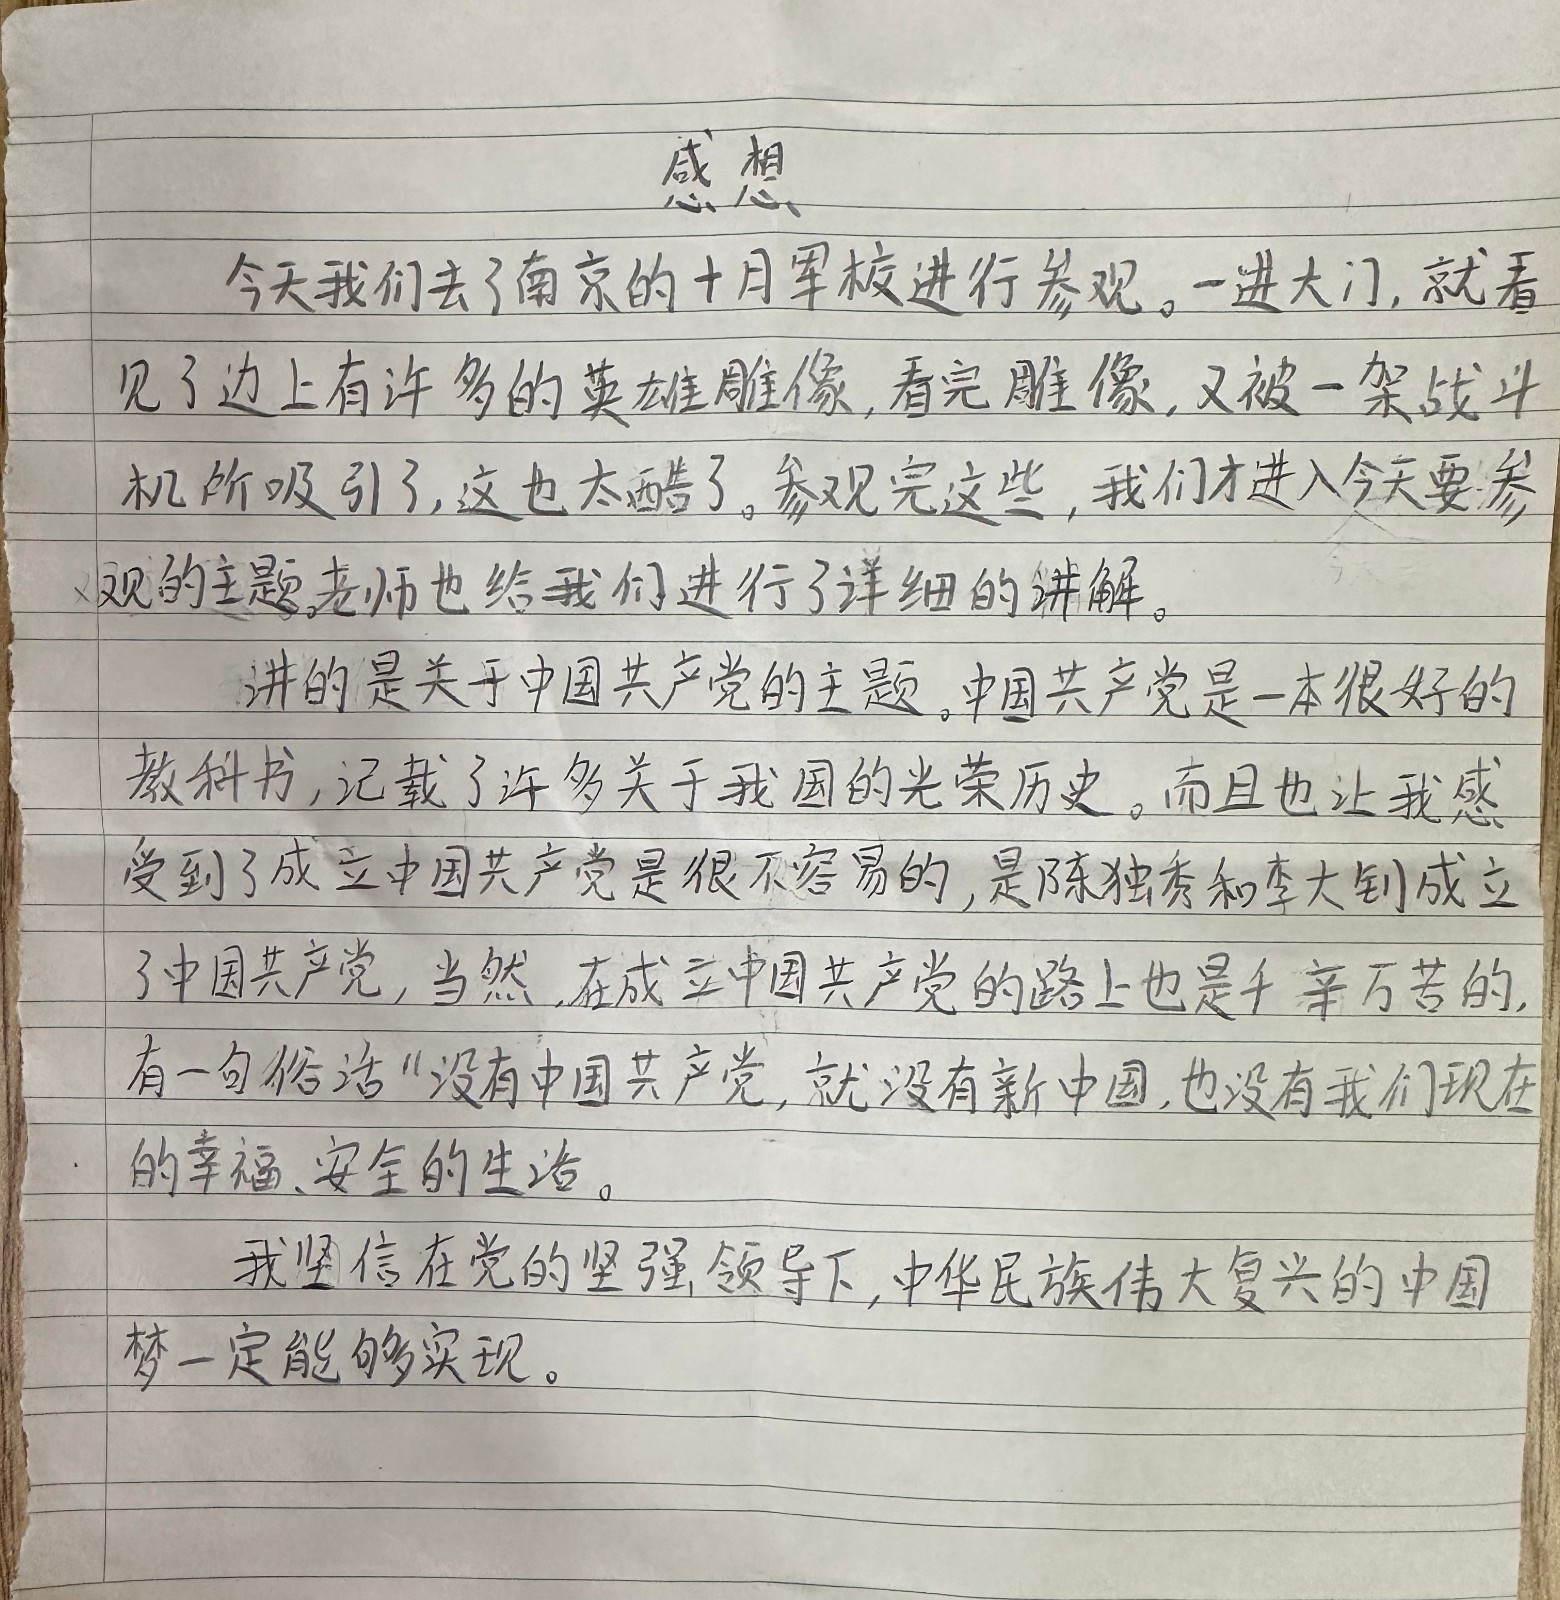 感想
今天我们去了南京的十月军校进行参观。一进大门，就看
见了边上有许多的英雄雕像，看完雕像，又被一架战斗
机所吸引了，这也太酷了。参观完这些，我们才进入今天要参
观的主题。老师也给我们进行了详细的讲解。
讲的是关于中国共产党的主题。中国共产党是一本很好的
教科书，记载了许多关于我国的光荣历史。而且也让我感
受到了成立中国共产党是很不容易的，是陈独秀和李大钊成立
了中国共产党，当然，在成立中国共产党的路上也是千辛万苦的，
有一句俗话“没有中国共产党，就没有新中国，也没有我们现在
的幸福、安全的生活。
我坚信在党的坚强领导下，中华民族伟大复兴的中国
梦一定能够实现。